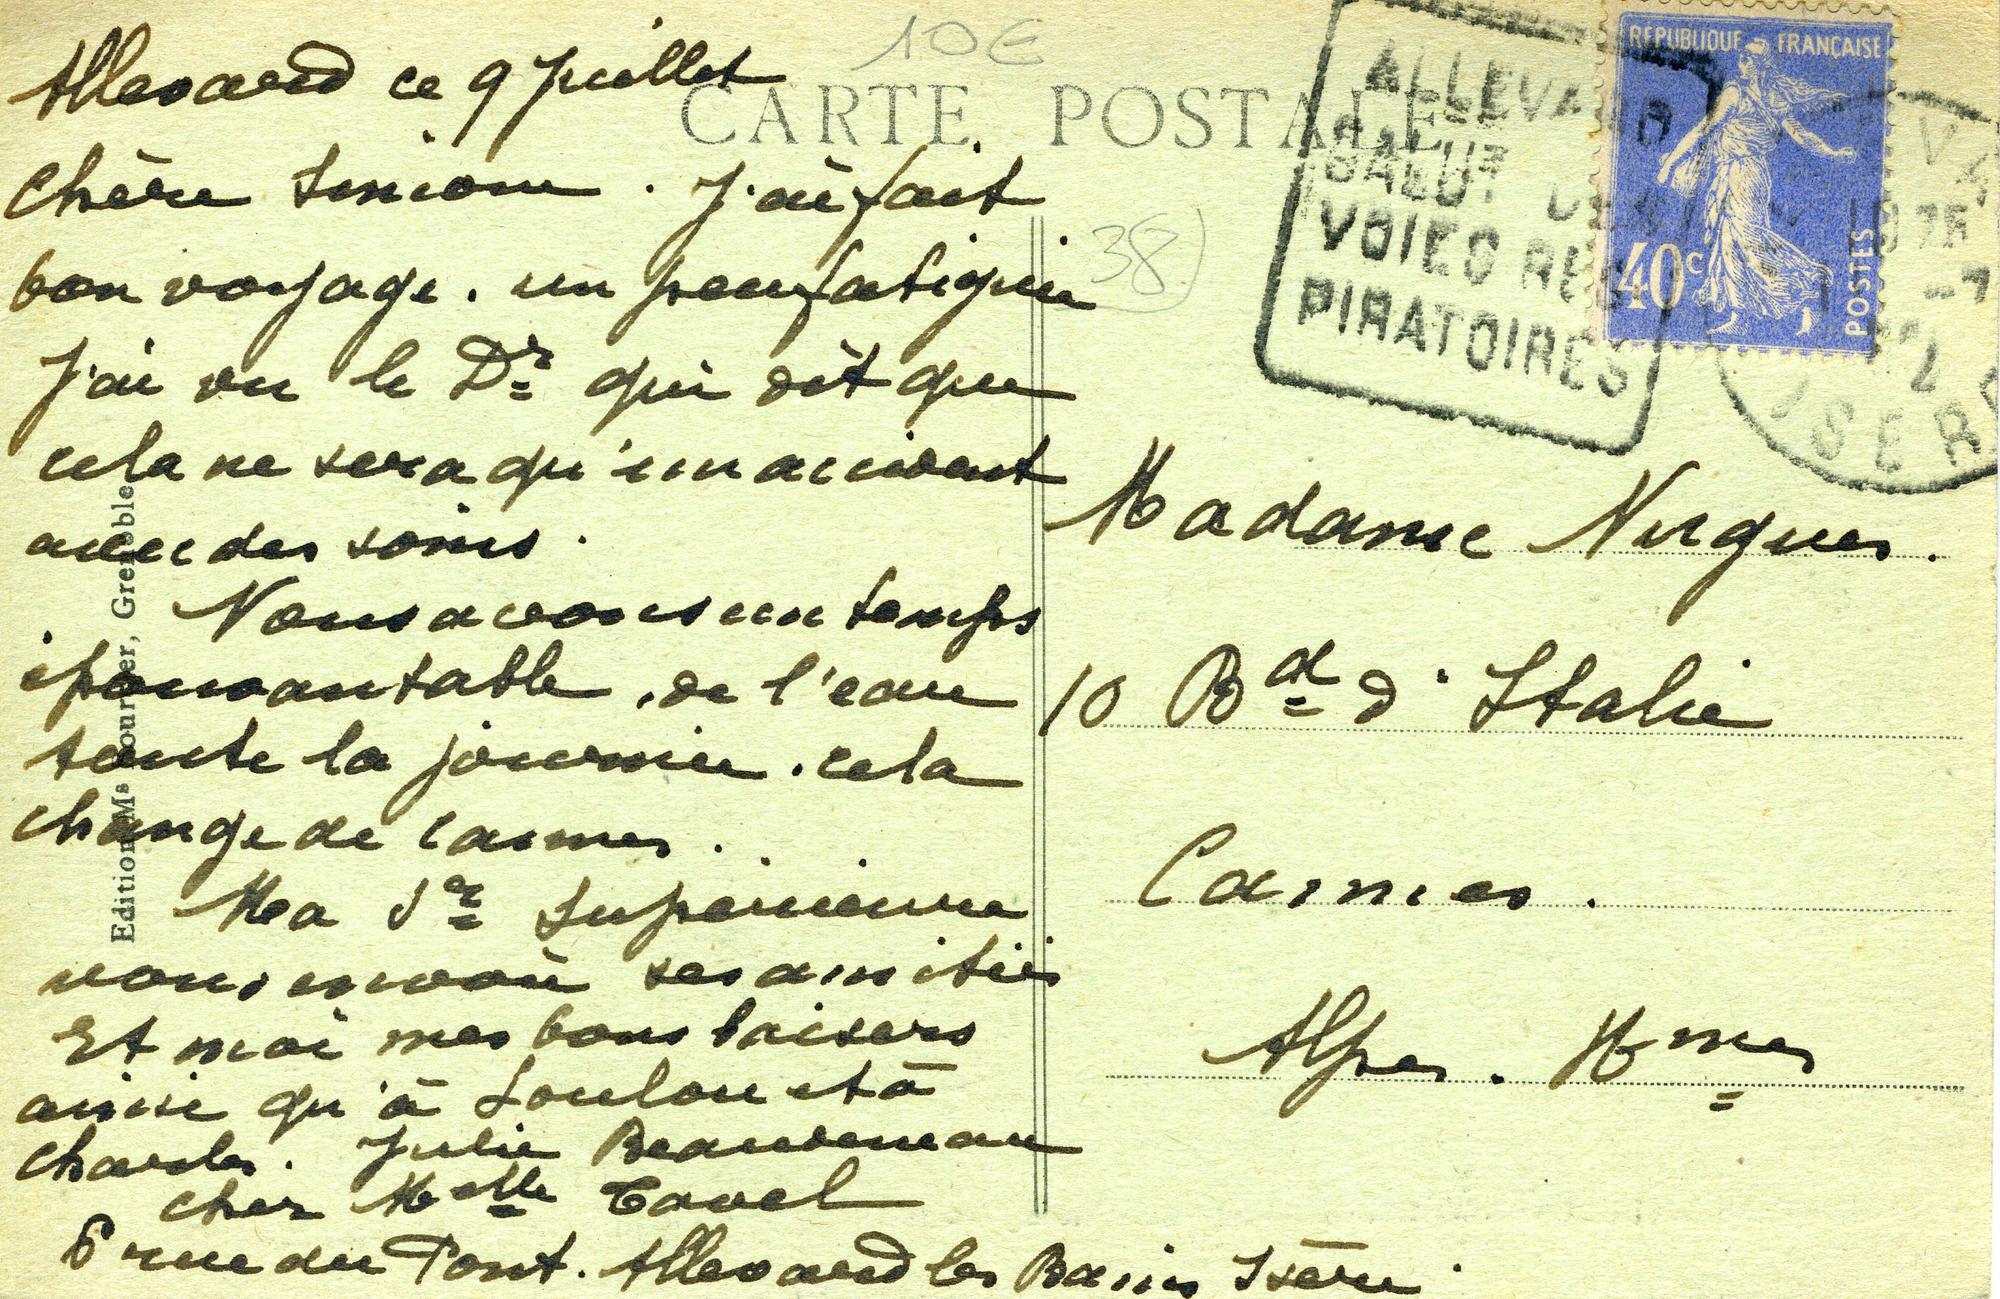 10€
CARTE POSTALE
Allevard ce 9 Juillet
Chère Simone. J'ai fait
bon voyage. un peu fatiguée
J'ai vu le Dr qui dit que
cela ne sera qu'un accident
avec des soins.
Nous avons un temps
épouvantable, de l'eau
toute la journée. cela
change de Cannes.
Ma Sr Supérieure
vous envoie ses amitiés
Et moi mes bons baisers
ainsi qu'à Loulou et à
Charles. Julie
chez Melle
6 rue du Pont. Allevard les Bains Isère
Edition Ms Grenoble
38)
ALLEVARD
SALUT DES
VOIES RES
PIRATOIRES
ISERE
REPUBLIQUE FRANÇAISE
40c
POSTES
Madame
10 Bd d'Italie
Cannes.
Alpes. Mmes